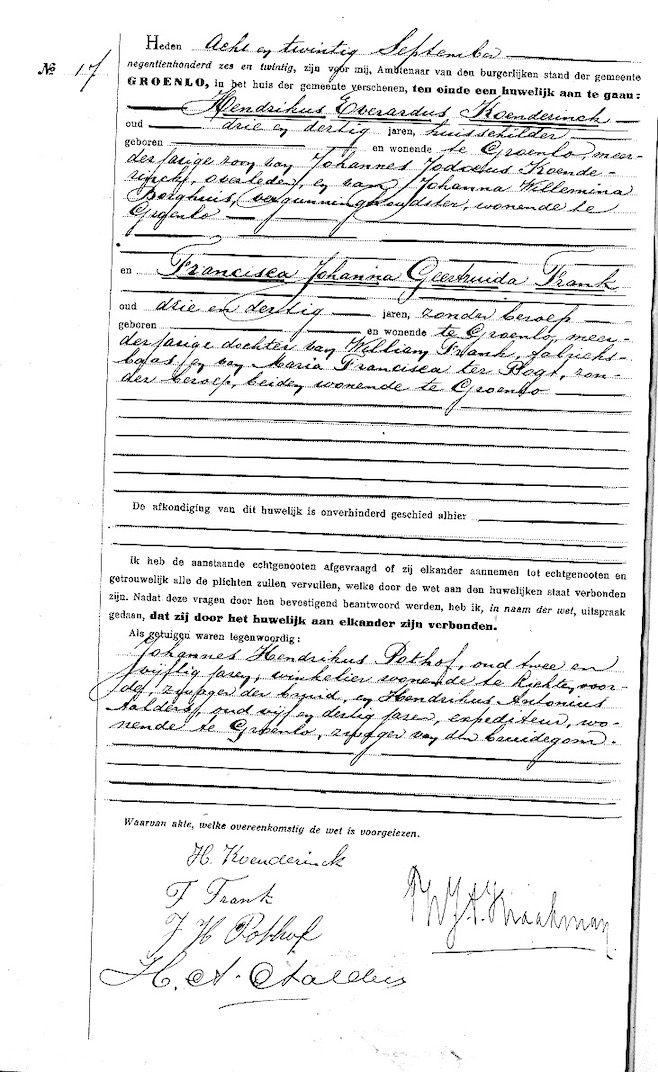 Heden acht en twintig September
№ 17
negentienhonderd zes en twintig, zijn voor mij, Ambtenaar van den burgerlijken stand der gemeente
GROENLO, in het huis der gemeente verschenen, ten einde een huwelijk aan te gaan:
Hendrikus Everardus Koenderinck
oud drie en dertig jaren, huisschilder
geboren en wonende te Groenlo, meer-
derjarige zoon van Johannes Jodocus Koende-
rinck, overleden, en van Johanna Willemina
Borghuis, vergunninghoudster, wonende te
Groenlo
en Francisca Johanna Geertruida Frank
oud drie en dertig jaren, zonder beroep
geboren en wonende te Groenlo, meer-
derjarige dochter van William Frank, fabrieks-
baas, en van Maria Francisca ter Bogt, zon-
der beroep, beiden wonende te Groenlo
De afkondiging van dit huwelijk is onverhinderd geschied alhier
Ik heb de aanstaande echtgenooten afgevraagd of zij elkander aannemen tot echtgenooten en
getrouwelijk alle de plichten zullen vervullen, welke door de wet aan den huwelijken staat verbonden
zijn. Nadat deze vragen door hen bevestigend beantwoord werden, heb ik, in naam der wet, uitspraak
gedaan, dat zij door het huwelijk aan elkander zijn verbonden.
Als getuigen waren tegenwoordig:
Johannes Hendrikus Pothof, oud twee en
vijftig jaren, winkelier wonende te Lichtenvoor-
de, zwager der bruid, en Hendrikus Antonius
Aalders, oud vijf en dertig jaren, expediteur, wo-
nende te Groenlo, zwager van den bruidegom.
Waarvan akte, welke overeenkomstig de wet is voorgelezen.
H. Koenderinck
F Frank
J H Pothof
H. A. Aalders
Kraakman